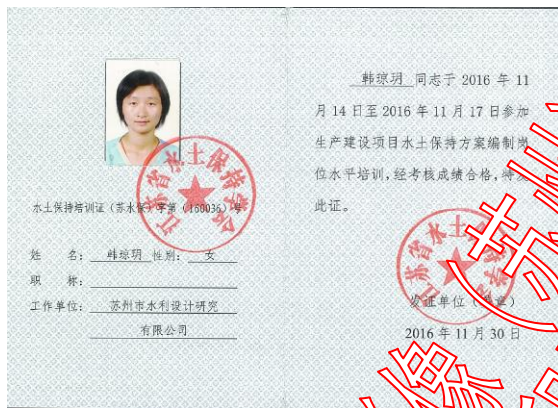 江苏省水土保持学会
水土保持培训证（苏水保）字第（160036）号
姓 名：韩琼玥 性别：女
职 称：
工作单位：苏州市水利设计研究
有限公司
韩琼玥 同志于 2016 年 11
月 14 日至 2016 年 11 月 17 日参加
生产建设项目水土保持方案编制岗
位水平培训，经考核成绩合格，特发
此证。
江苏省水土保持学会
发证单位（盖章）
2016 年 11 月 30 日
（苏州